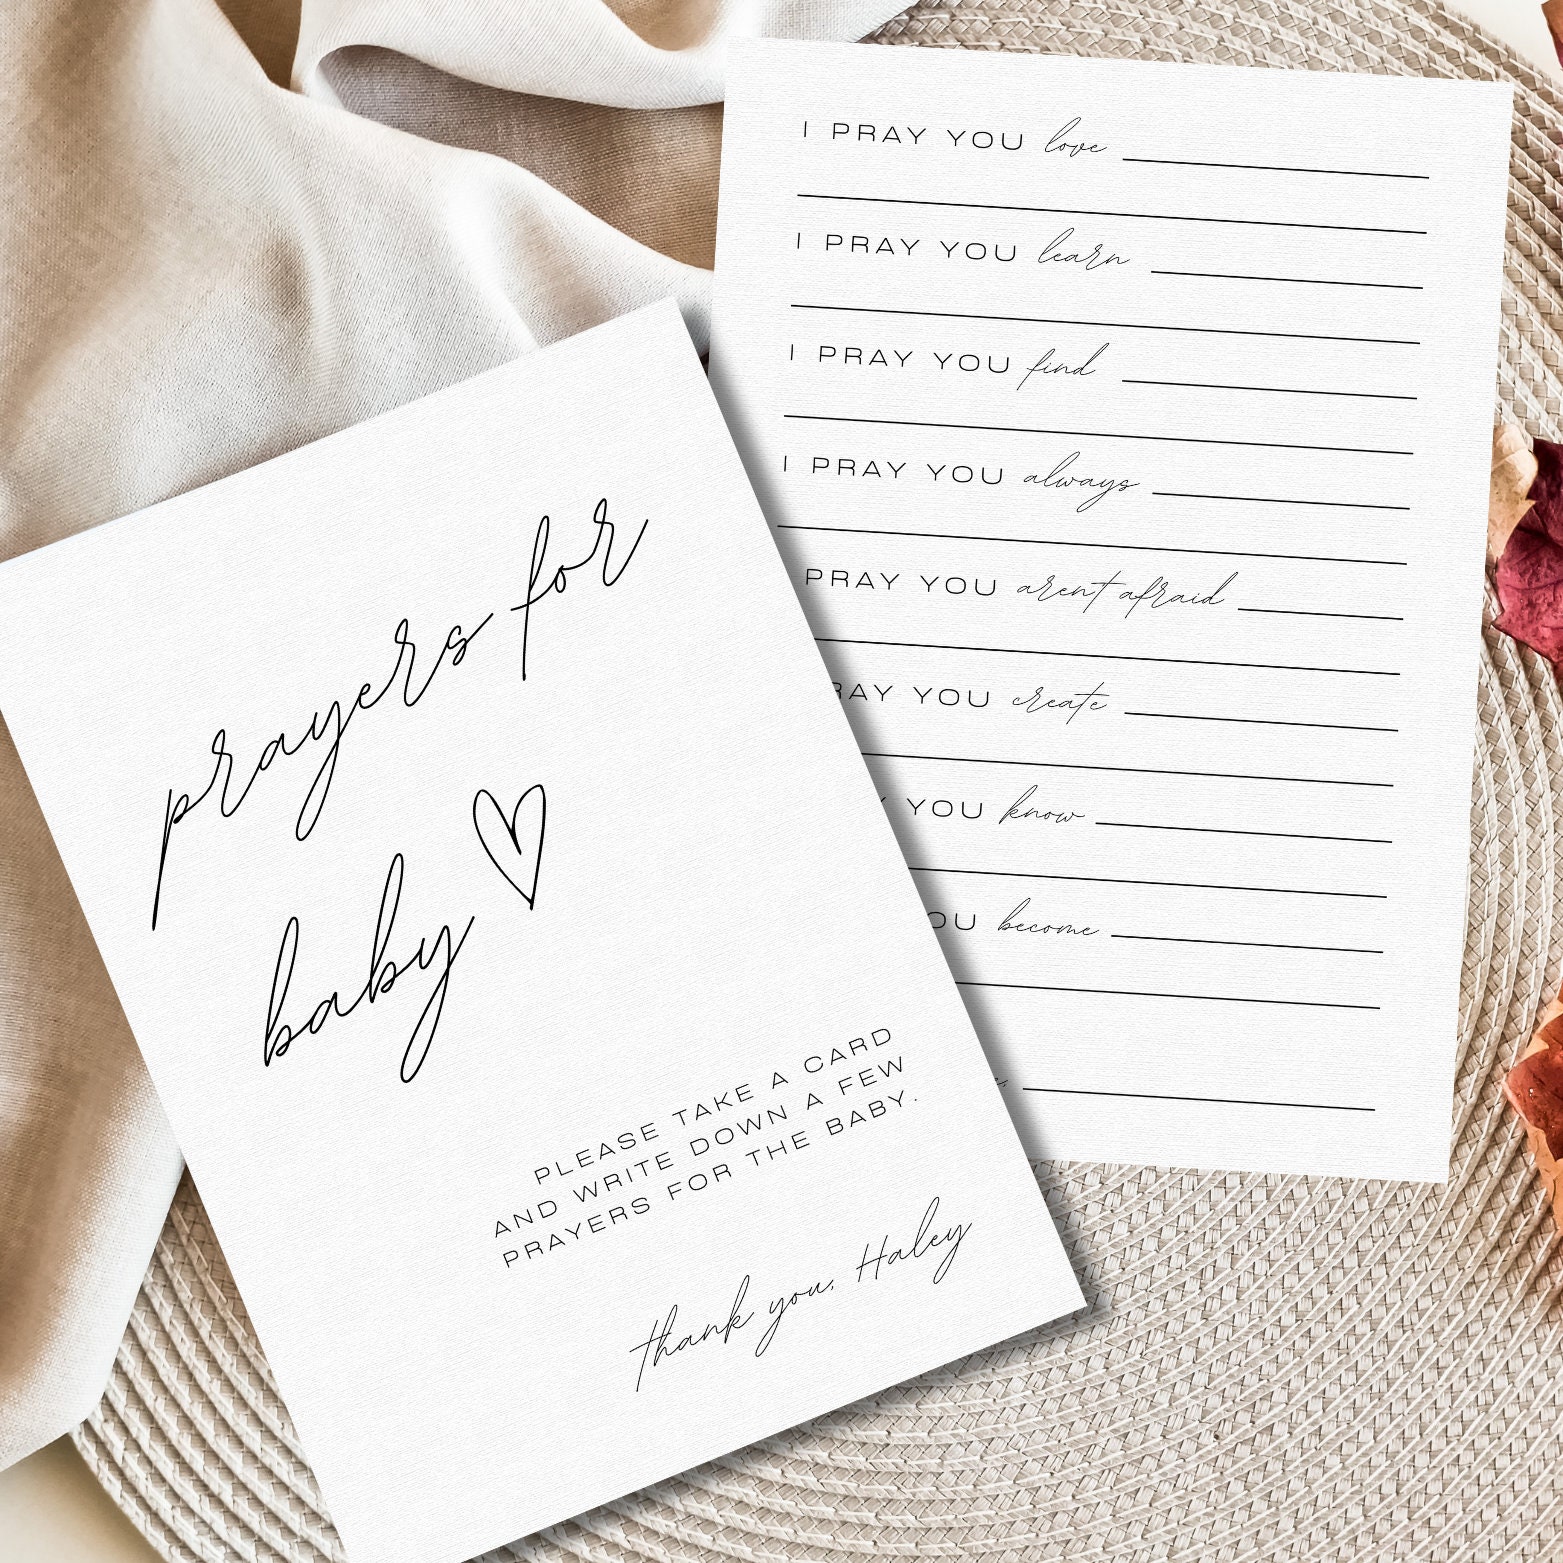 prayers for
baby
PLEASE TAKE A CARD
AND WRITE DOWN A FEW
PRAYERS FOR THE BABY.
thank you, Haley
I PRAY YOU love
I PRAY YOU learn
I PRAY YOU find
I PRAY YOU always
PRAY YOU arent afraid
RAY YOU create
YOU know
OU become